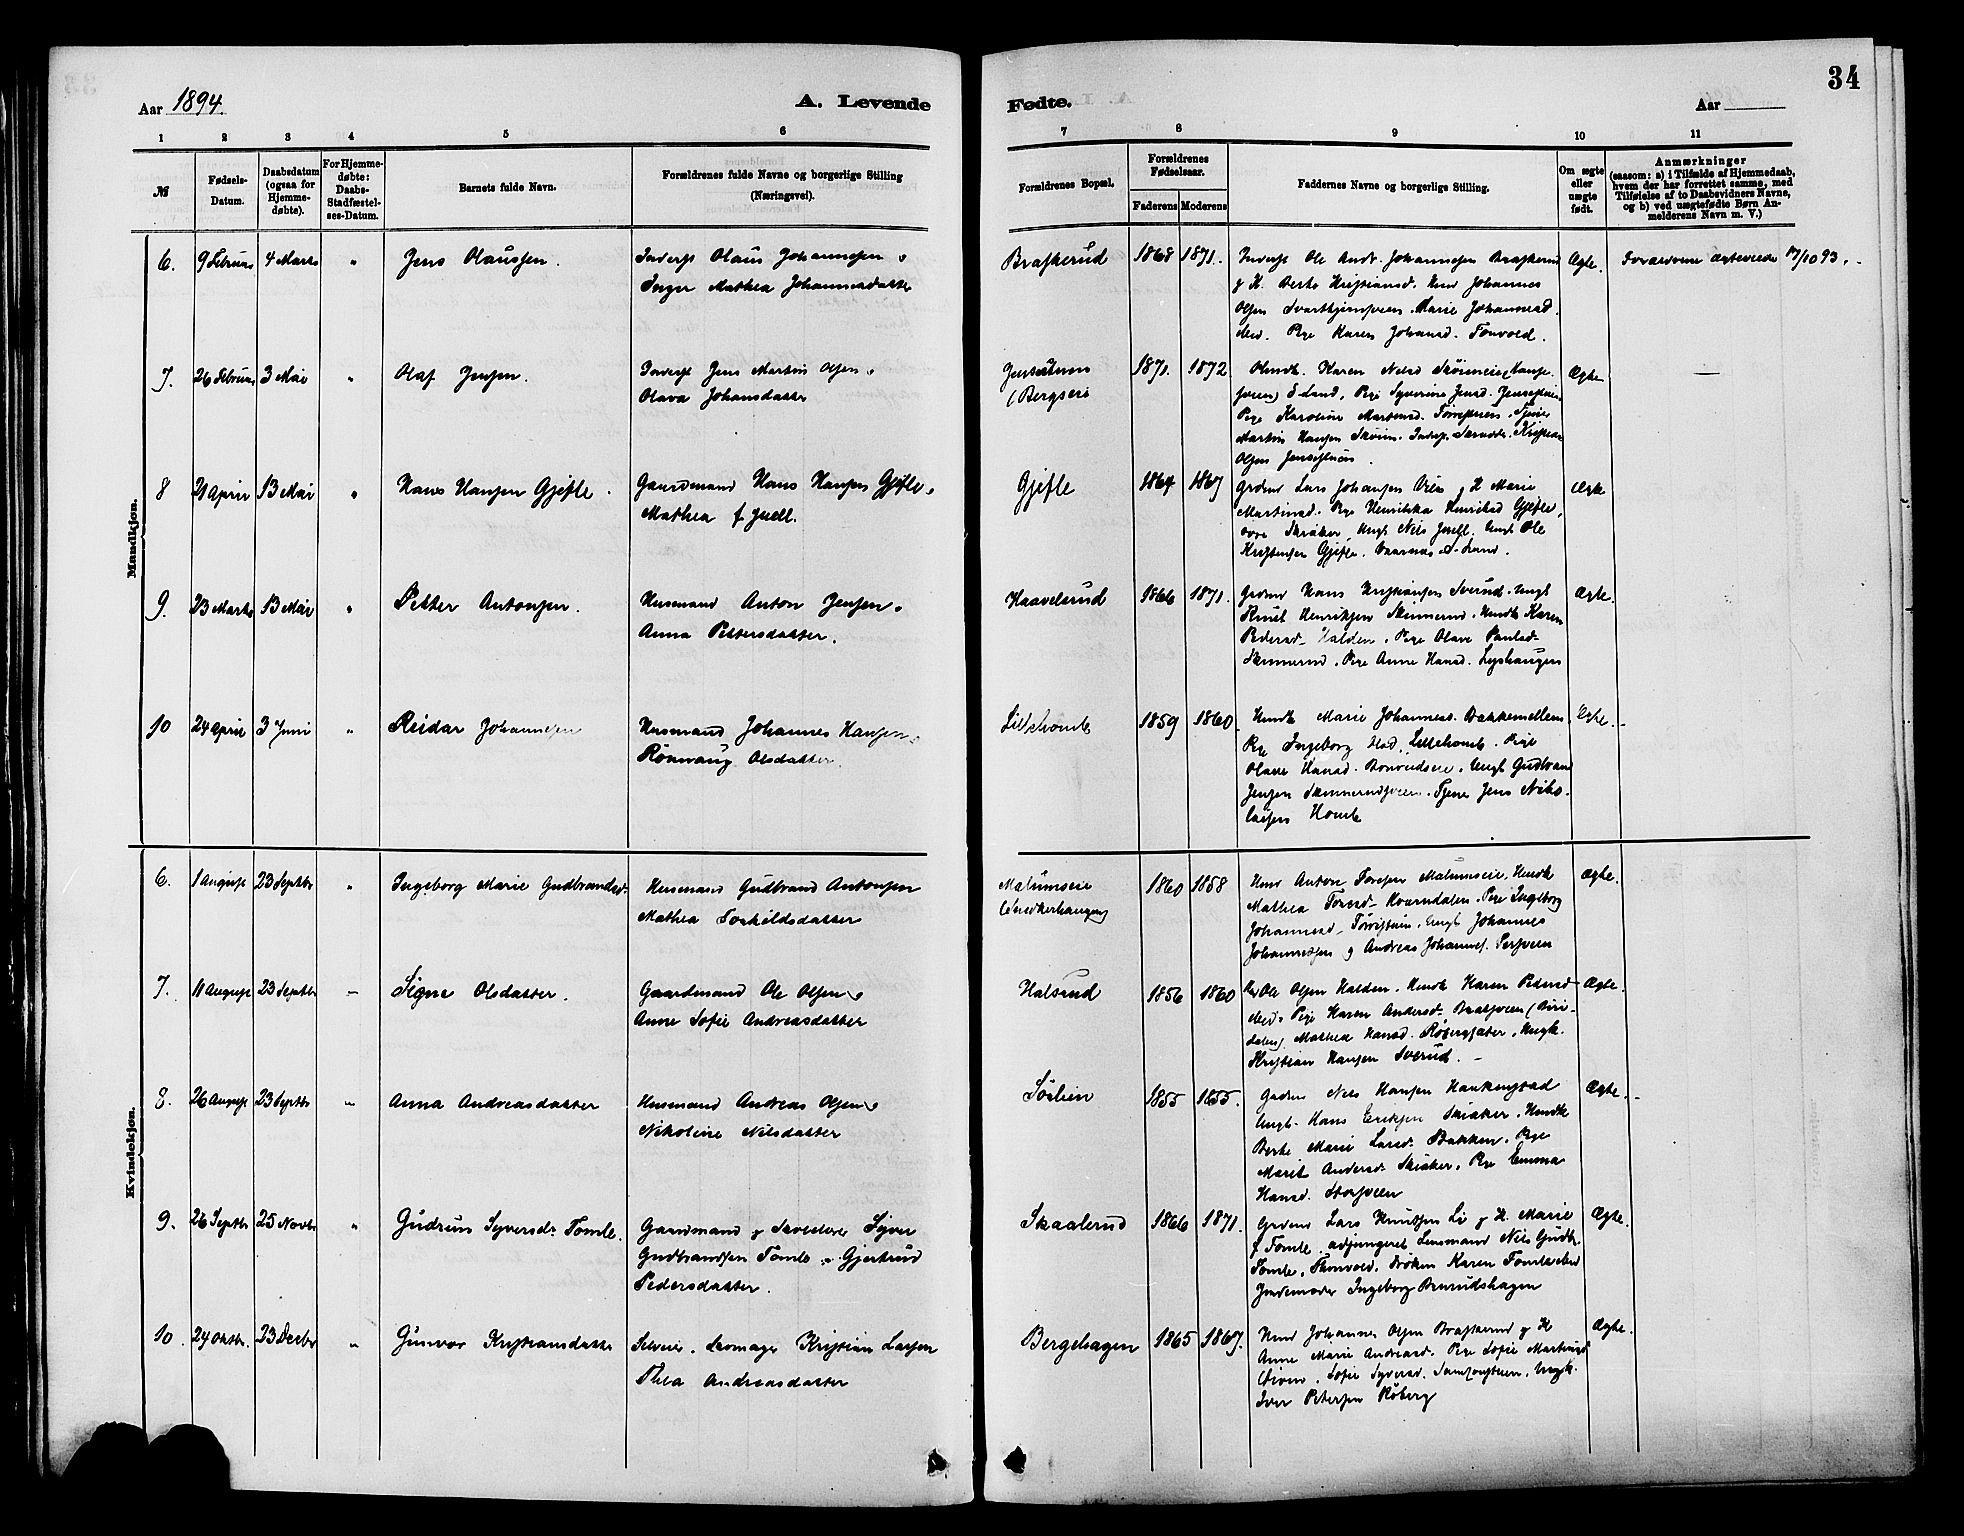 34
Aar 1894.
A. Levende
Fødte.
Aar
1 2 3 4 5 6 7 8 9 10 11
№
Fødsels-
Datum.
Daabsdatum
(ogsaa for
Hjemme-
døbte).
For Hjemme-
døbte:
Daabs-
Stadfæstel-
ses-Datum.
Barnets fulde Navn.
Forældrenes fulde Navne og borgerlige Stilling
(Næringsvei).
Forældrenes Bopæl.
Forældrenes
Fødselsaar.
Faderens Moderens
Faddernes Navne og borgerlige Stilling.
Om ægte
eller
uægte
født.
Anmærkninger
(saasom: a) i Tilfælde af Hjemmedaab,
hvem der har forrettet samme, med
Tilføielse af to Daabsvidners Navne,
og b) ved uægtefødte Børn An-
melderens Navn m. V.)
Mandkjøn.
6. 9 Februar 4 Marts " Jens Olaussen.
Inderst Olaus Johannesen
Inger Mathea Johannesdatter
Braskerud 1868 1871.
Inderst Ole Andr. Johannesen Braskerud
g K. Berte Kristiansd. Husmd Johannes
Olsen Svarthjemsveen. Marie Johannesd.
Pige Karen Johansd. Tonvold.
Ægte.
Forældrene ægteviede 17/10 93.
7. 26 Februar 3 Mai " Olaf Jensen.
Inderst Jens Martin Olsen
Olava Johansdatter
Jensehuus
(Bergseie
1871. 1872
Karen Nilsd
S. Land, Pige Syverine Jensd.
Pige Karoline Martinsd.
Martin Hansen Kristian
Olsen
Ægte
—
8 21 April 13 Mai " Hans Hansen Gjefle.
Gaardmand Hans Hansen Gjefle,
Mathea f. Juell.
Gjefle 1864 1867
Grdmd Lars Johansen g K Marie
Martinsd. Pige Henrikka Henriksd Gjefle,
Skiaker, Ungk Nils Juell. Ungk Ole
Kristensen Gjefle. S. Land.
Ægte
9. 23 Marts 13 Mai " Petter Antonsen.
Husmand Anton Jensen
Anna Pettersdatter.
Haavelsrud 1866 1871.
Grdmd Hans Kristiansen Sverud. Ungk
Knut Henriksen Skinnerud. Hmdk Karen
Pedersd. Halden. Pige Olave Paulsd
Skinnerud. Pige Anne Hansd. Lyshaugen
Ægte.
10 24 April 3 Juni " Reidar Johannesen
Husmand Johannes Hansen
Rønnaug Olsdatter.
Lillehomb 1859 1860.
Hmdk Marie Johannesd. Bakkemellem
Pige Ingeborg Lillehomb. Pige
Olave Hansd. Ungk Gudbran
Jensen Skinnerudsveen. Tjener Jens Niko-
laisen Homb
Ægte.
Kvindekjøn.
6. 1 August 23 Septbr " Ingeborg Marie Gudbrandsd.
Husmand Gudbrand Antonsen
Mathea Torkildsdatter
Malumseie
(Snedkerhaugen)
1860 1858
Hmd Anton Malumseie. Hmdk
Mathea Kværndalen. Pige Ingeborg
Johannesd. Ungk Johannes
Johannessen g Andreas Johannes.
Ægte.
7. 11 August 23 Septbr – Signe Olsdatter.
Gaardmand Ole Olsen
Anne Sofie Andreasdatter
Halsrud 1856 1860
Ole Olsen Halden. Hmdk Karen Pedersd
Pige Karen Andersd. Bratsveen (Biri-
dalen) Mathea Hansd. Røbergsæter. Ungk.
Kristian Hansen Sverud. –
Ægte.
8. 26 August 23 Septbr " Anna Andreasdatter
Husmand Andreas Olsen
Nikoline Nilsdatter
Sørlien 1855 1855.
Grdmd Nils Hansen
Ungk Hans Eriksen Skiaker. Hmdk
Berte Marie Larsd. Bakken. Pige
Marit Andersd. Skiaker. Pige Emma
Hansd. Storsveen
Ægte.
9. 26 Septbr 25 Novbr " Gudrun Syversdr. Tomle.
Gaardmand g Skoleder Syver
Gudbrandsen Tomle Gjertrud
Pedersdatter.
Skaalerud 1866 1871.
Grdmd Lars Knutsen Li g K. Marie
f Tomle adjungeret Lensmand Nils Gudbr.
Tomle, Thonvold. Frøken Karen
Jordemoder Ingeborg
Ægte.
10. 24 Oktbr. 23 Decbr " Gunvor Kristiansdatter
Selveier. Skomager Kristian Larsen
Thea Andreasdatter
Bergehagen 1865 1867.
Hmd Johannes Olsen Braskerud g K
Anne Marie Andreasd. Pige Sofie Martinsd
Sofie Syversd. Ungk.
Iver Petersen Røberg
Ægte.